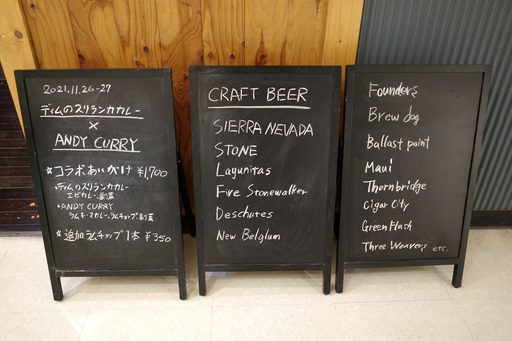 2021.11.26-27
ディムのスリランカカレー
×
ANDY CURRY
☆コラボあいがけ ¥1,700
・ディムのスリランカカレー
エビカレー
・ANDY CURRY
ラムキーマカレー、ラムチョップ
☆追加ラムチョップ1本 ¥350
CRAFT BEER
SIERRA NEVADA
STONE
Lagunitas
Fire Stonewalker
Deschutes
New Belgium
Founders
Brew dog
Ballast paint
Maui
Thornbridge
Cigar City
Green Flash
Three Weavers etc.